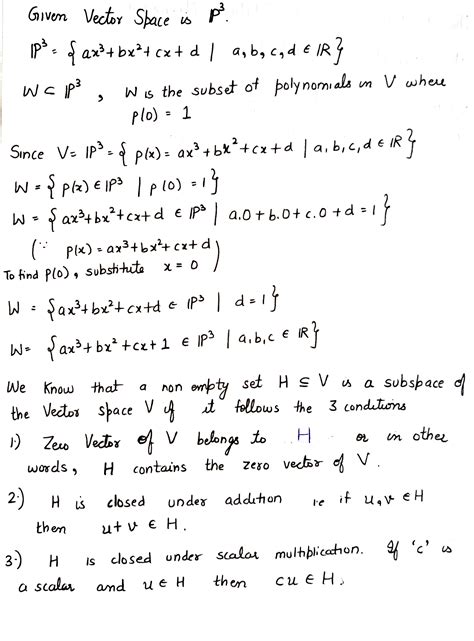 Given Vector Space is ℙ³.
ℙ³ = { ax³+bx²+cx+d | a,b,c,d ∈ ℝ }
W ⊂ ℙ³ , W is the subset of polynomials in V where
p(0) = 1
Since V = ℙ³ = { p(x) = ax³+bx²+cx+d | a,b,c,d ∈ ℝ }
W = { p(x) ∈ ℙ³ | p(0) = 1 }
W = { ax³+bx²+cx+d ∈ ℙ³ | a.0+b.0+c.0+d = 1 }
(∵ p(x) = ax³+bx²+cx+d)
To find p(0), substitute x = 0
W = { ax³+bx²+cx+d ∈ ℙ³ | d=1 }
W = { ax³+bx²+cx+1 ∈ ℙ³ | a,b,c ∈ ℝ }
We know that a non empty set H ⊆ V is a subspace of
the Vector space V if it follows the 3 conditions
1.) Zero Vector of V belongs to H or in other
words, H contains the zero vector of V.
2.) H is closed under addition i.e if u,v ∈ H
then u+v ∈ H.
3.) H is closed under scalar multiplication. If 'c' is
a scalar and u ∈ H then cu ∈ H.